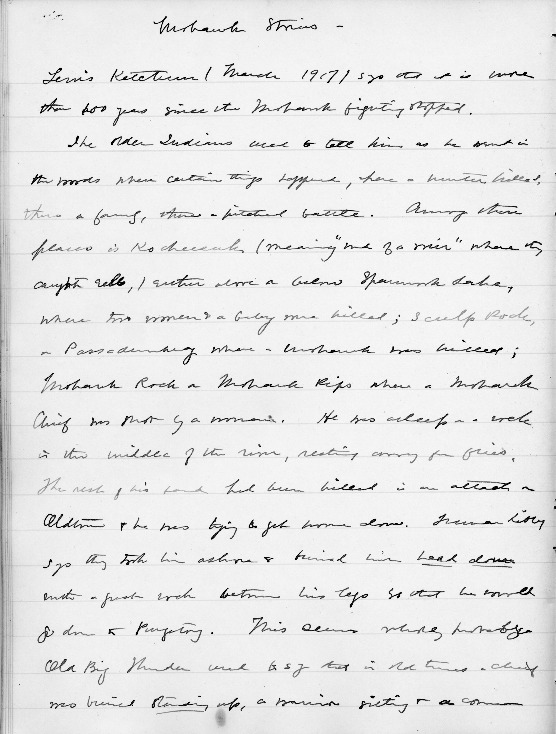 Mohawk Stories -
Lewis Ketchum (March 1917) says that it is more
than 200 years since the Mohawk fighting stopped.
The older Indians used to tell him as he went in
the woods where certain things happened, here a hunter killed,
there a family, there a pitched battle. Among these
places is (meaning "end of a weir" where they
caught eels,) either above or below Lake,
where two women & a baby were killed; Scalp Rock,
on Passadumkeag where a Mohawk was killed;
Mohawk Rock or Mohawk Rips where a Mohawk
Chief was shot by a woman. He was asleep on a rock
in the middle of the river, resting away from flies.
The rest of his band had been killed in an attack on
Oldtown & he was trying to get home alone. Libby
says they took him ashore & buried him head down
with a great rock between his legs so that he would
go down to Purgatory. This seems wholly probable
Old Big Thunder used to say that in old times a chief
was buried standing up, a warrior sitting & a common